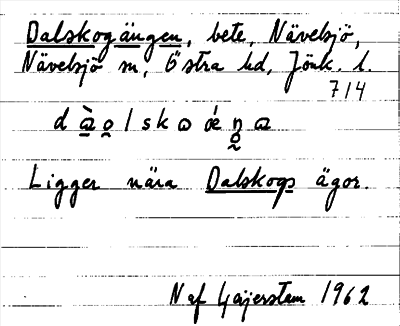 Dalskogängen, bete, Nävelsjö,
Nävelsjö sn, Östra hd, Jönk. l.
714
Ligger nära Dalskogs ägor.
N af Geijerstam 1962